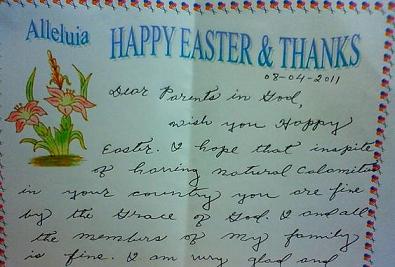 Alleluia
HAPPY EASTER & THANKS
08-04-2011
Dear Parents in God,
wish you Happy
Easter. I hope that inspite
of having natural Calamities
in your country you are fine
by the Grace of God. I and all
the members of my family
is fine. I am very glad and